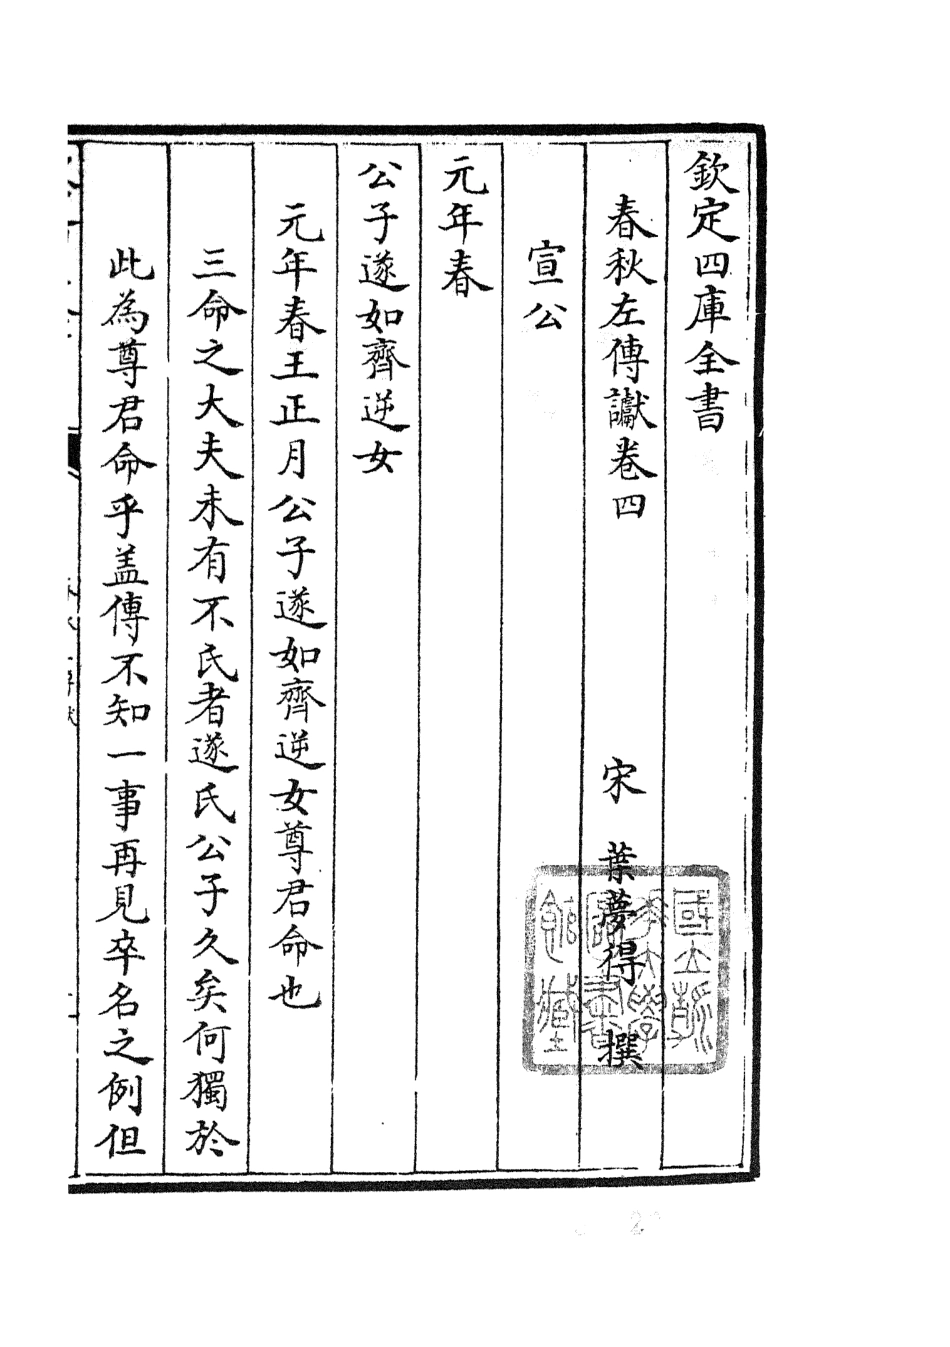 欽定四庫全書
春秋左傳讞卷四　宋　葉夢得　撰
宣公
元年春
公子遂如齊逆女
元年春王正月公子遂如齊逆女尊君命也
三命之大夫未有不氏者遂氏公子久矣何獨於
此為尊君命乎盖傳不知一事再見卒名之例但